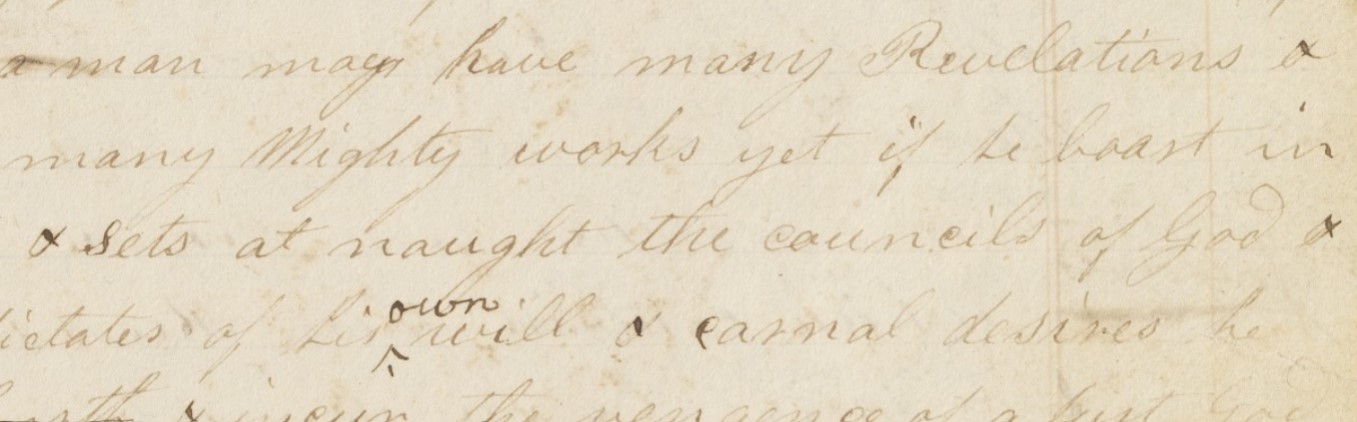 a man may have many Revelations &
many Mighty works yet if he boast in
& sets at naught the councils of God &
dictates of his own will & carnal desires he
& incur the vengence of a just God